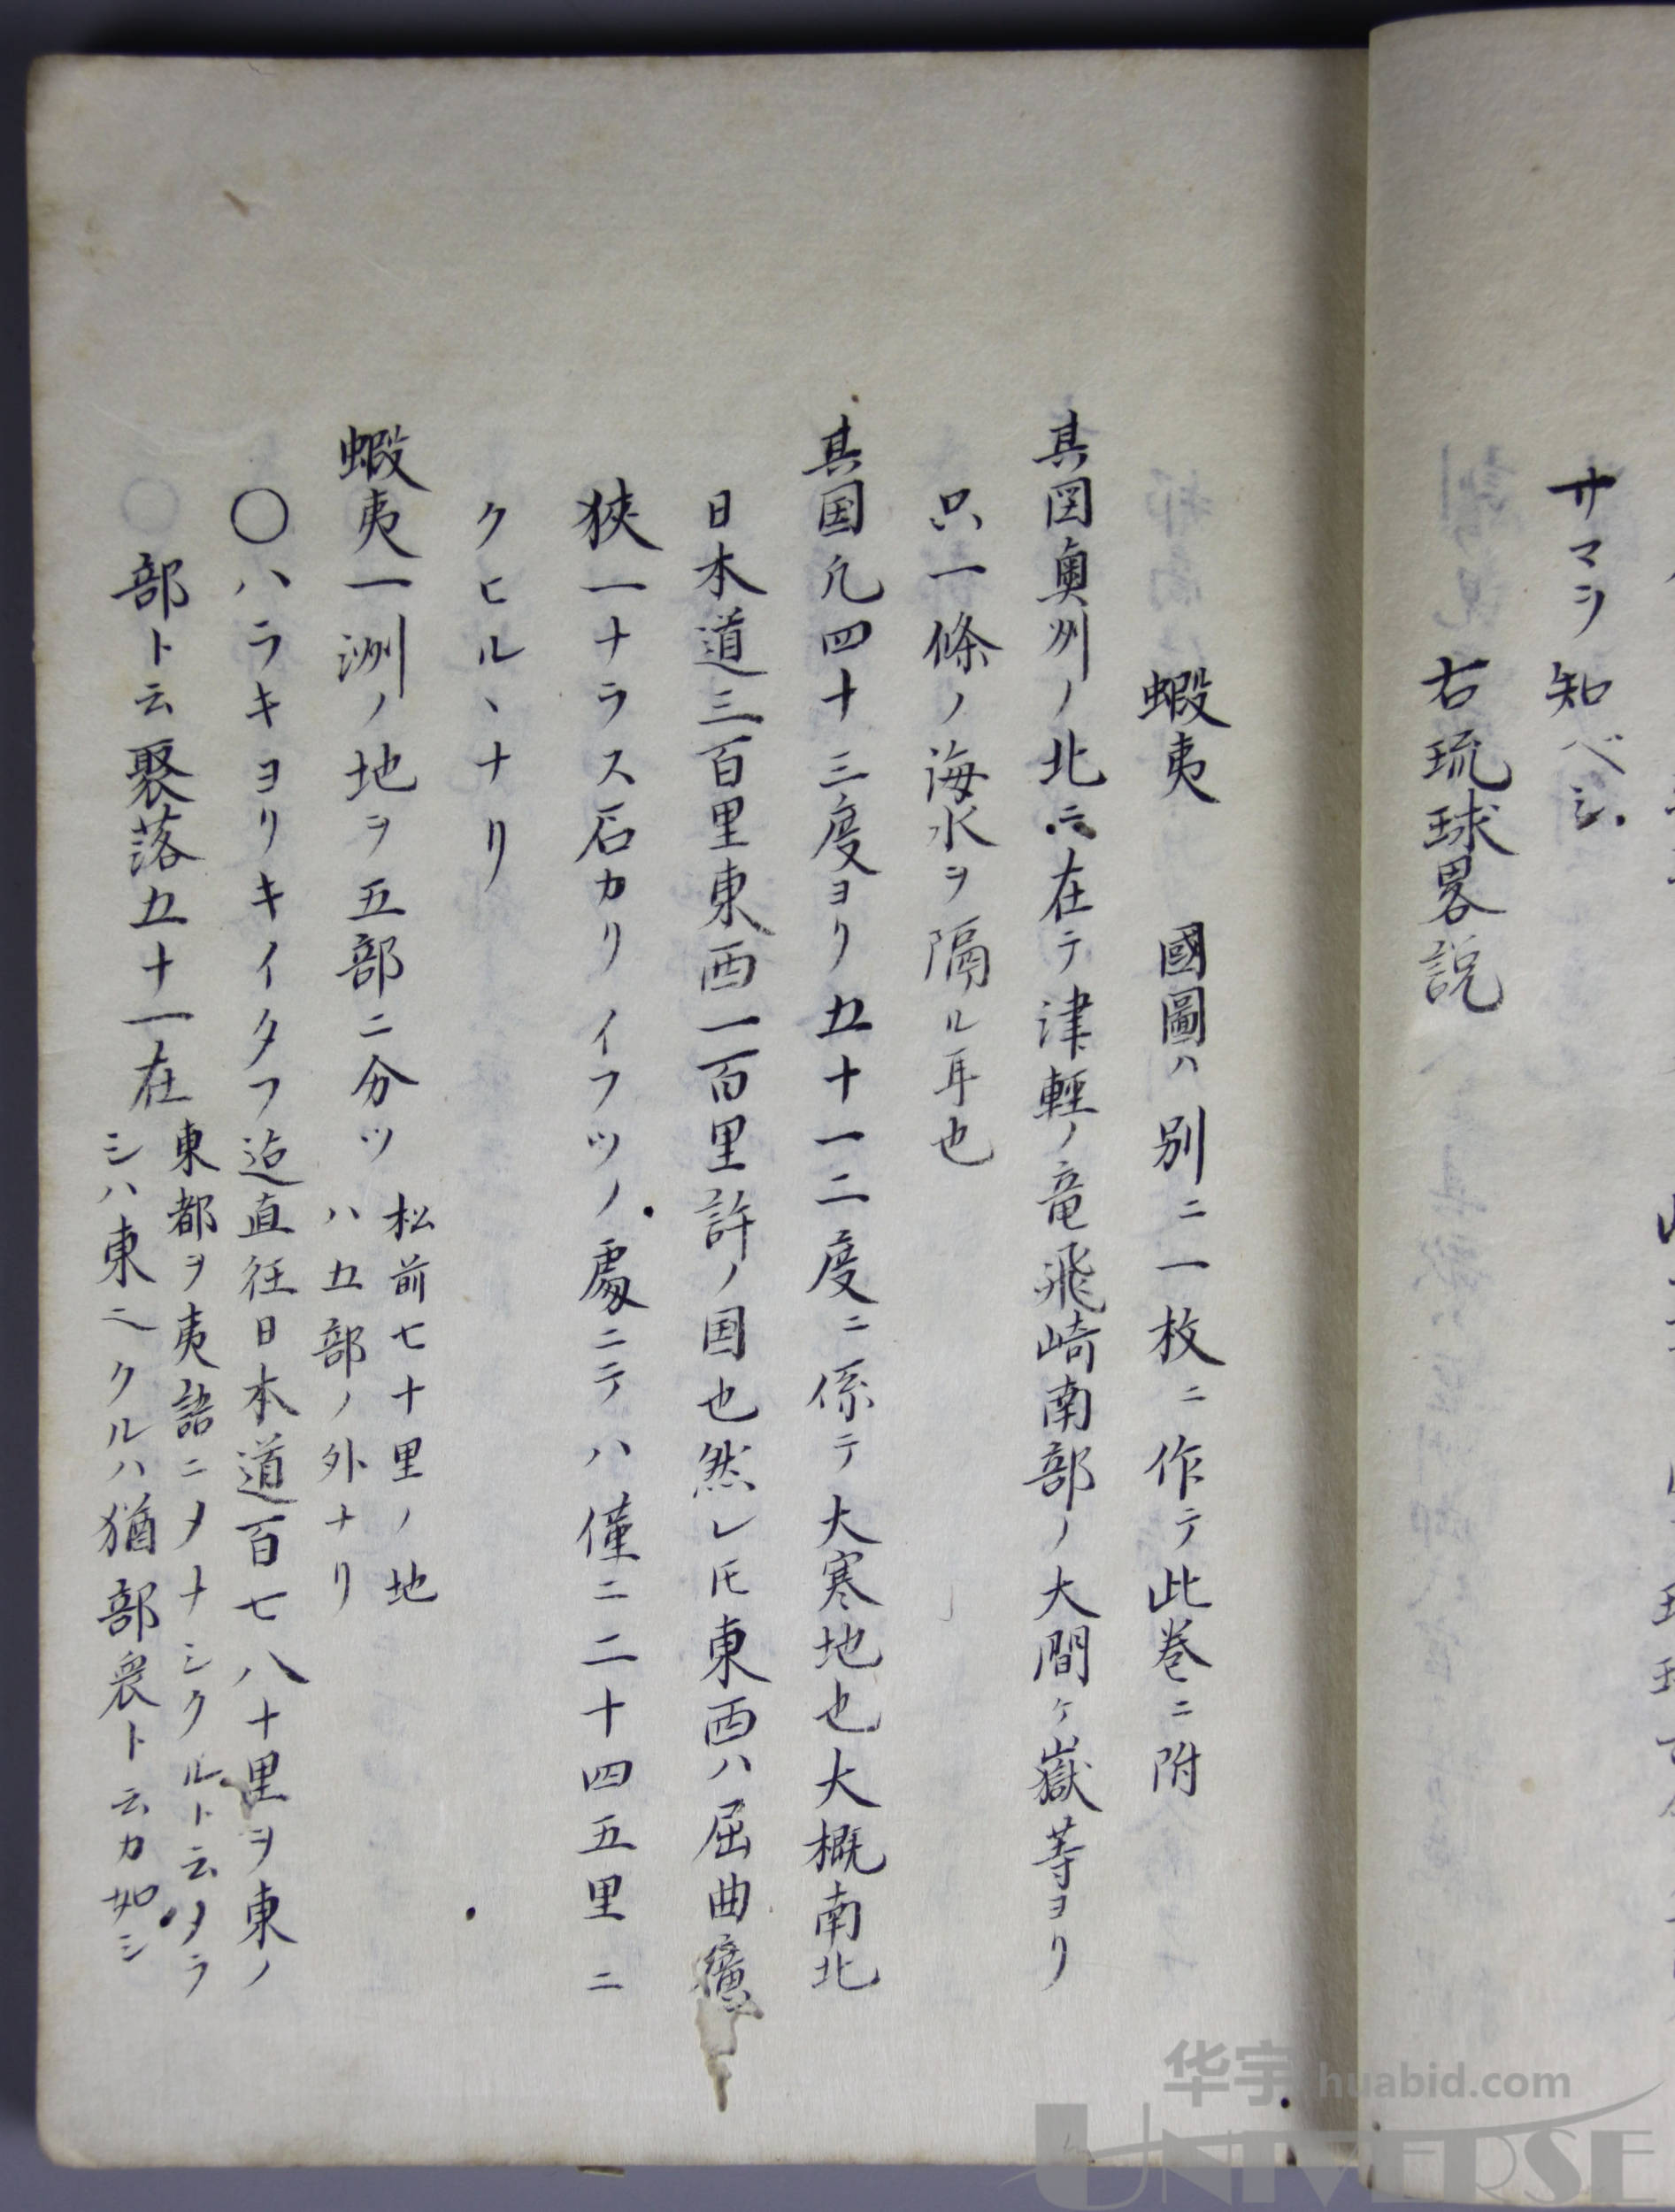 サマヲ知ベシ
右琉球畧説
蝦夷 國圖ハ別ニ一枚ニ作テ此巻ニ附
其図奥州ノ北ニ在テ津輕ノ竜飛崎南部ノ大間ケ嶽等ヨリ
只一條ノ海水ヲ隔ル耳也
其国凡四十三度ヨリ五十一二度ニ係テ大寒地也大概南北
日本道三百里東西一百里許ノ国也然レ𪜈東西ハ屈曲癀
狹一ナラス石カリイフツノ處ニテハ僅ニ二十四五里ニ
クヒルヽナリ
蝦夷一洲ノ地ヲ五部ニ分ツ 松前七十里ノ地
ハ五部ノ外ナリ
○ハラキヨリキイタフ迠直径日本道百七八十里ヲ東ノ
部ト云聚落五十一在 東都ヲ夷語ニメナシクルト云メラ
シハ東ニクルハ猶部衆ト云カ如シ
华宇 huabid.com
UNIVERSE